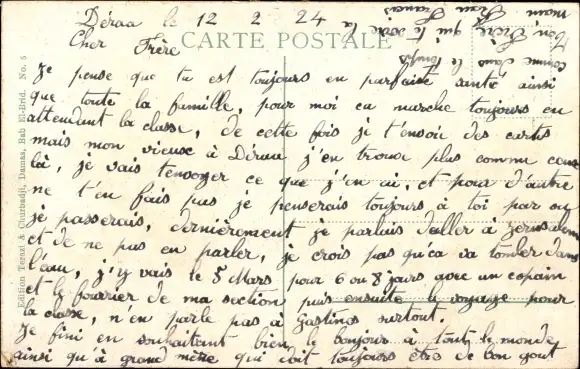 Déraa le 12 2 24
CARTE POSTALE
Cher Frère
Je pense que tu est toujours en parfaite santé ainsi
que toute la famille, pour moi ca marche toujours en
attendant la classe, de cette fois je t'envoie des cartes
mais mon vieux à Déraa j'en trouve plus comme ceux
là, je vais t'envoyer ce que j'en ai, et pour d'autre
ne t'en fais pas je penserais toujours à toi par ou
je passerais, dernièrement je parlais d'aller à Jerusalem
et de ne pas en parler, je crois pas qu'ca va tomber dans
l'eau, j'y vais le 5 Mars pour 6 ou 8 jours avec un copain
et le fourrier de ma section puis ensuite le voyage pour
la classe, n'en parle pas à Gastinos surtout.
Je fini en souhaitant bien le bonjour à tout le monde
ainsi qu'à grand mère qui doit toujours être de bon gout
comme dans le temps
Ton Frère qui te serre la
main
Jean François
Edition Terazi & Churbadji, Damas, Bab El-Brid. No. 5